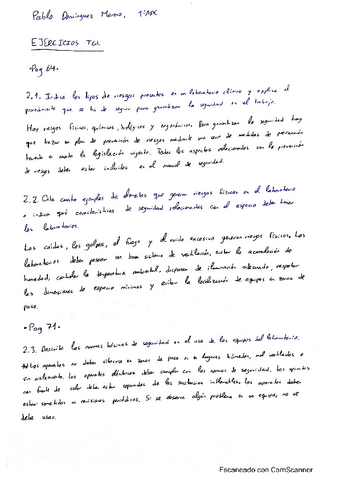 Pablo Domínguez Moreno. 1º APC
EJERCICIOS TGL
·Pag 64·
2.1. Indica los tipos de riesgos presentes en un laboratorio clínico y explica el
procedimiento que se ha de seguir para garantizar la seguridad en el trabajo.
Hay riesgos físicos, químicos, biológicos y ergonómicos. Para garantizar la seguridad hay
que trazar un plan de prevención de riesgos mediante una serie de medidas de prevención
teniendo en cuenta la legislación vigente. Todos los aspectos relacionados con la prevención
de riesgos deben estar incluidos en el manual de seguridad.
2.2. Cita cuatro ejemplos de elementos que generen riesgos físicos en el laboratorio
e indica qué características de seguridad relacionadas con el espacio deben tener
los laboratorios.
Las caídas, los golpes, el fuego y el ruido excesivo generan riesgos físicos. Los
laboratorios deben poseer un buen sistema de ventilación, evitar la acumulación de
humedad, controlar la temperatura ambiental, disponer de iluminación adecuada, respetar
las dimensiones de espacio mínimas y evitar la localización de equipos en zonas de
paso.
·Pag 71·
2.3. Describe las normas básicas de seguridad en el uso de los equipos del laboratorio.
Los aparatos no deben ubicarse en zonas de paso ni en lugares húmedos, mal ventilados o
sin aislamiento. Los aparatos eléctricos deben cumplir con las normas de seguridad. Los aparatos
con fuente de calor deben estar separados de las sustancias inflamables. Los aparatos deben
estar sometidos a revisiones periódicas. Si se observa algún problema en un equipo, no se
debe usar.
Escaneado con CamScanner